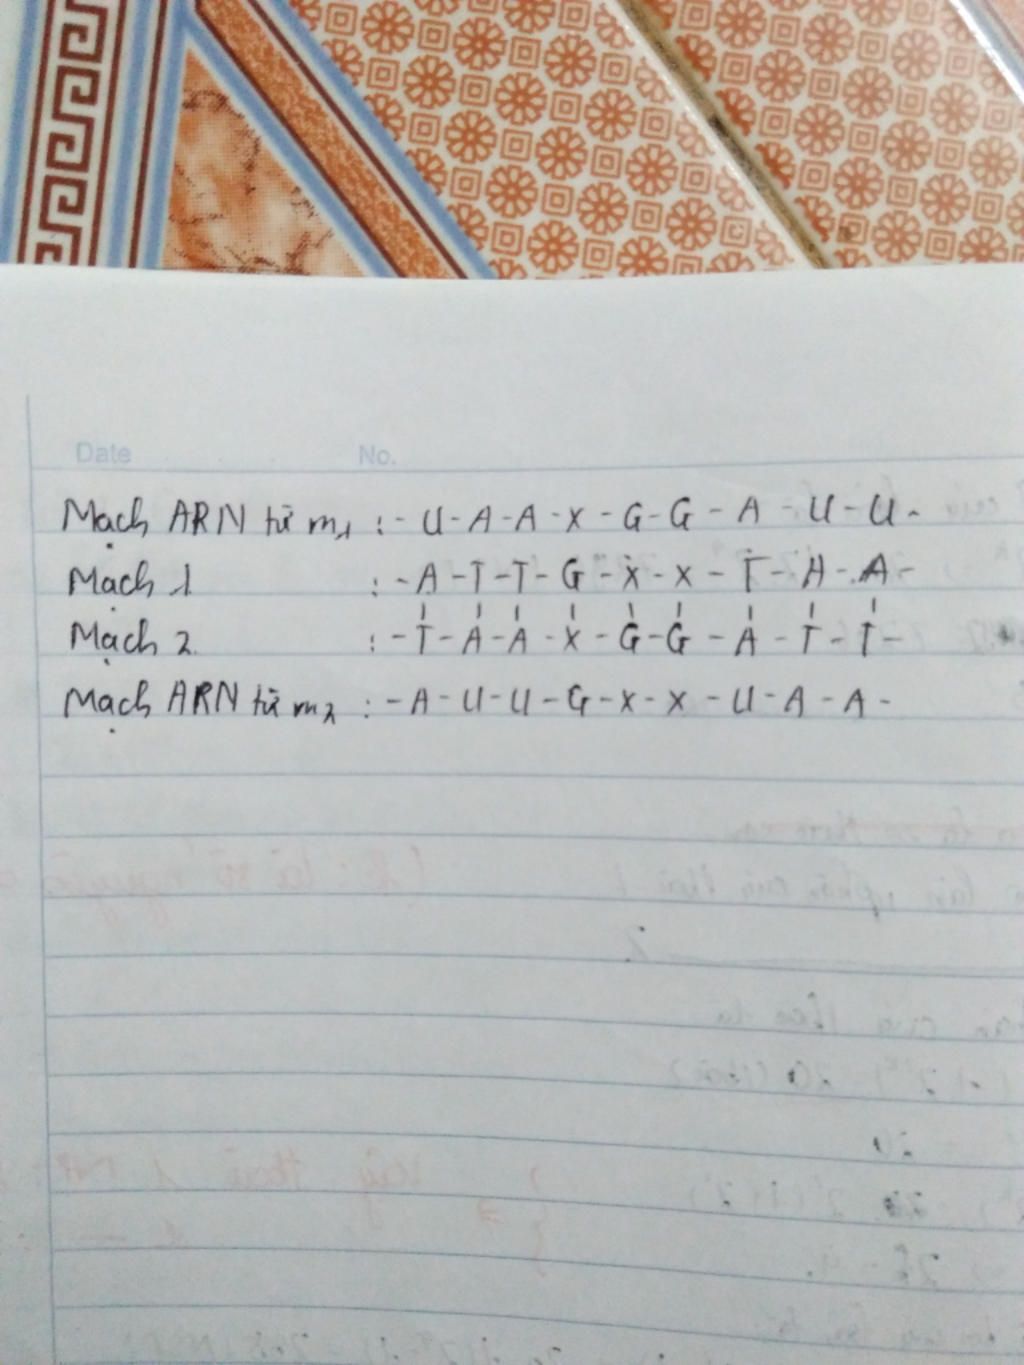 Date No.
Mạch ARN từ m1 : - U - A - A - X - G - G - A - U - U -
Mạch 1 : - A - T - T - G - X - X - T - A - A -
Mạch 2 : - T - A - A - X - G - G - A - T - T -
Mạch ARN từ m2 : - A - U - U - G - X - X - U - A - A -